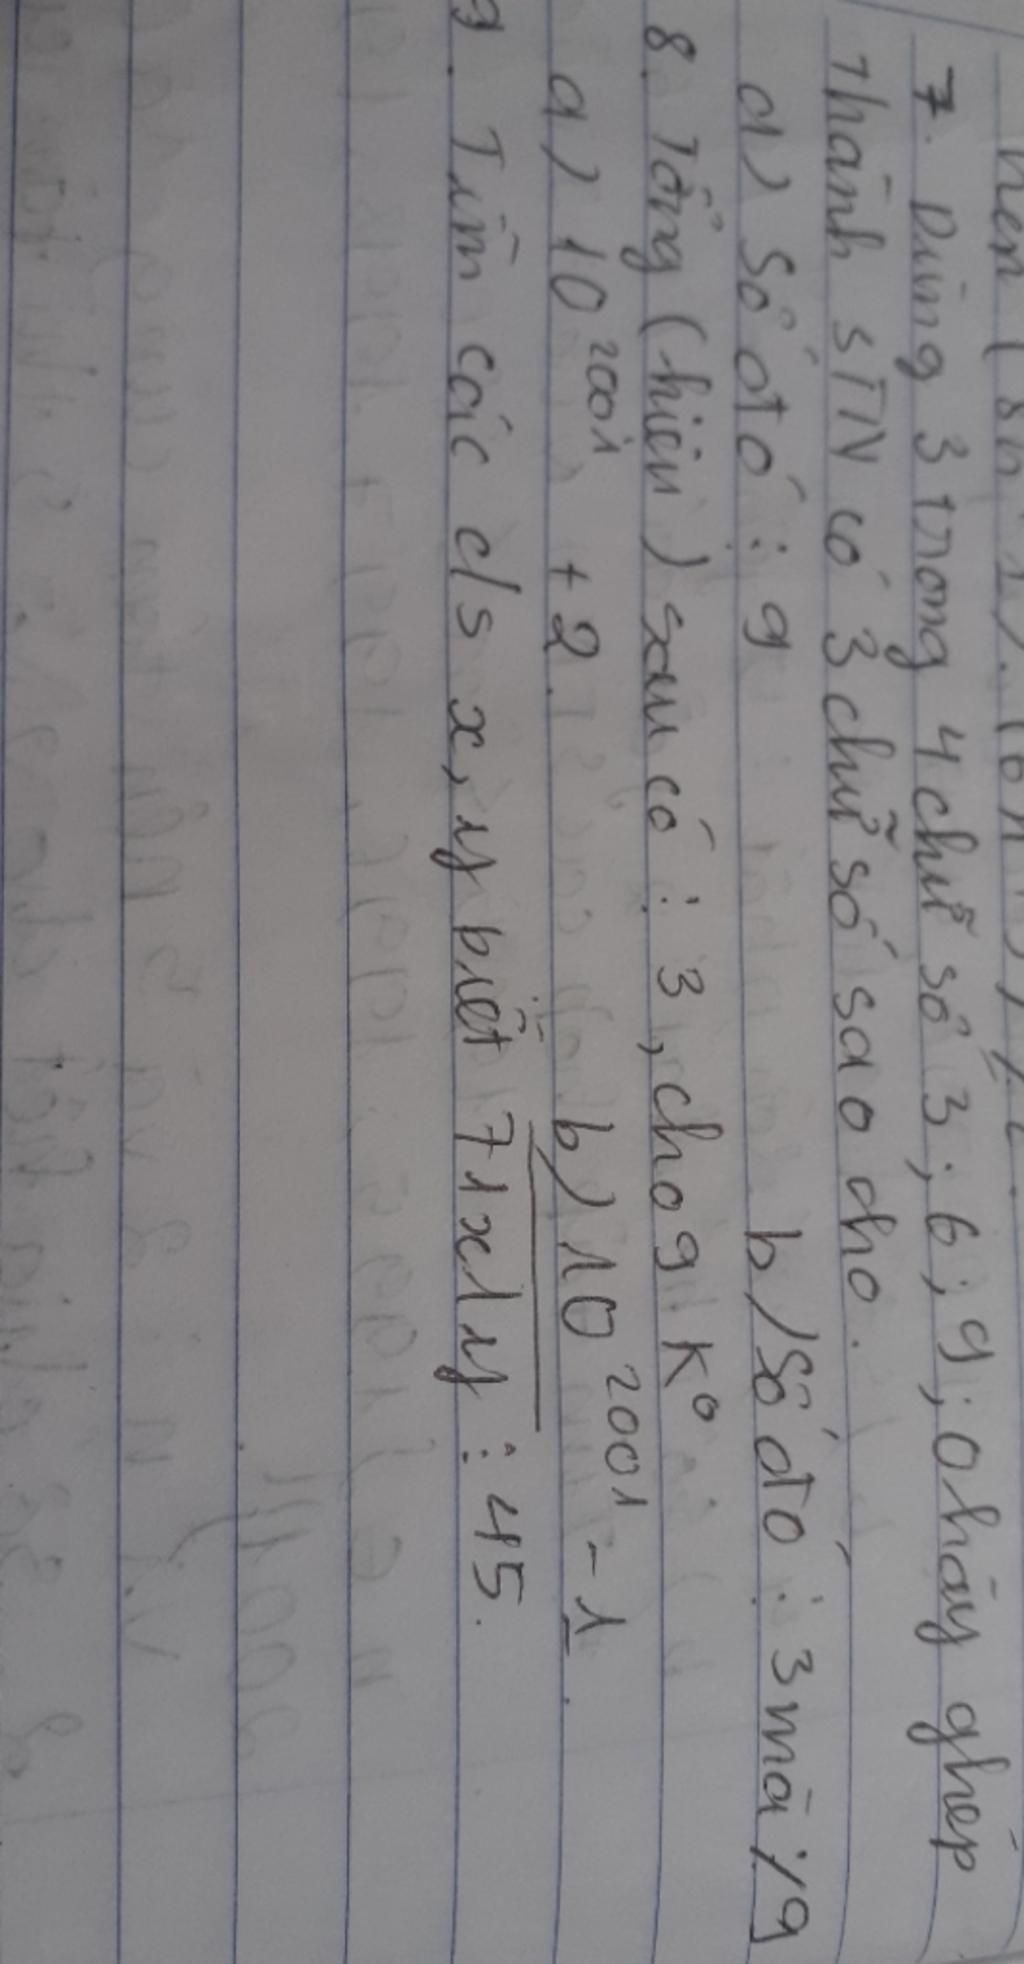 7. Dùng 3 trong 4 chữ số 3; 6; 9; 0 hãy ghép
thành STN có 3 chữ số sao cho.
a) Số đó ⋮ 9 b) Số đó ⋮ 3 mà ⋮̸ 9
8. Tổng (hiệu) sau có ⋮ 3, cho 9 k°
a) 10²⁰⁰¹ + 2. b) 10²⁰⁰¹ - 1.
9. Tìm các c/s x, y biết 71x1y ⋮ 45.